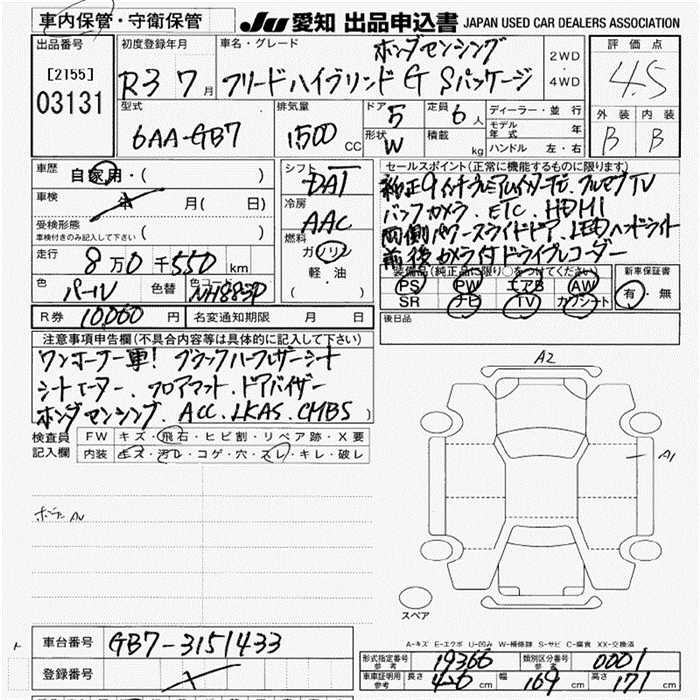 車内保管・守衛保管
JU 愛知 出品申込書 JAPAN USED CAR DEALERS ASSOCIATION
出品番号 初度登録年月 車名・グレード ホンダセンシング 2WD 評価点
[2155] R3 7月 フリードハイブリッド G Sパッケージ 4WD 4.5
03131
型式 排気量 ドア 5 定員 6人 ディーラー・並行 外装 内装
6AA-GB7 1500 CC 形状 W 積載 kg モデル年式 年 B B
ハンドル 左・右
車歴 自家用・( ) シフト DAT セールスポイント(正常に機能するものに限ります)
車検 年 月( 日) 冷房 AAC 純正9インチプレミアムインターナビ.フルセグTV
受検形態 バックカメラ.ETC.HDMI
車検付きのみ記入して下さい ( ) 燃料 両側パワースライドドア.LEDヘッドライト
走行 8万0千550km ガソリン 前後カメラ付ドライブレコーダー
軽・油 装備品(純正品に限り○をつけてください) 新車保証書
色 パール 色替 色コード NH883P ( ) PS PW エアB AW 有・無
SR ナビ TV カワシート
R券 10,060円 名変通知期限 月 日 後日品
注意事項申告欄(不具合内容等は具体的に記入して下さい)
ワンオーナー車! ブラックハーフレザーシート
シートヒーター.フロアマット.ドアバイザー
ホンダセンシング.ACC.LKAS.CMBS
検査員記入欄 FW キズ・飛石・ヒビ割・リペア跡・X要
内装 キズ・汚レ・コゲ・穴・スレ・キレ・破レ
A2
A1
スペア
A-キズ E-エクボ U-凹み W-補修跡 S-サビ C-腐食 XX-交換済
車台番号 GB7-3151433
登録番号
形式指定番号 参考 19366 類別区分番号 参考 0001
車庫証明用 参考 長さ 426 cm 幅 169 cm 高さ 171 cm